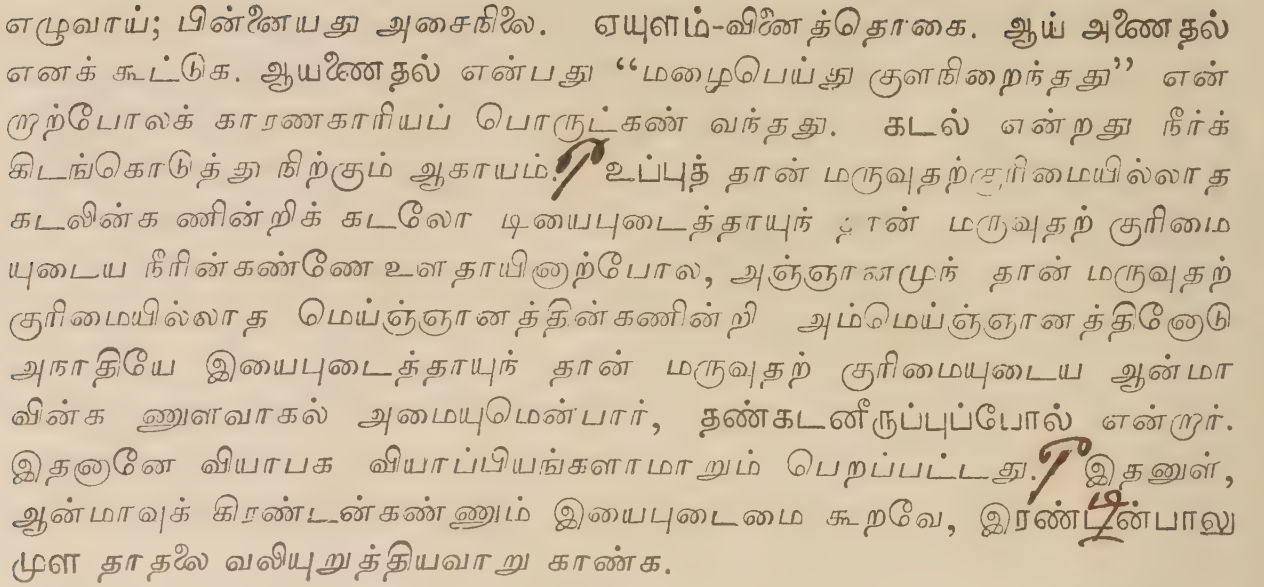 எழுவாய்; பின்னையது அசைநிலை. ஏயுளம்-வினைத்தொகை. ஆய் அணைதல்
எனக் கூட்டுக. ஆயணைதல் என்பது “மழைபெய்து குளநிறைந்தது” என்
றாற்போலக் காரணகாரியப் பொருட்கண் வந்தது. கடல் என்றது நீர்க்
கிடங்கொடுத்து நிற்கும் ஆகாயம். உப்புத் தான் மருவுதற்குரிமையில்லாத
கடலின்க ணின்றிக் கடலோ டியைபுடைத்தாயுந் தான் மருவுதற் குரிமை
யுடைய நீரின்கண்ணே உளதாயினாற்போல, அஞ்ஞானமுந் தான் மருவுதற்
குரிமையில்லாத மெய்ஞ்ஞானத்தின்கணின்றி அம்மெய்ஞ்ஞானத்தினோடு
அநாதியே இயைபுடைத்தாயுந் தான் மருவுதற் குரிமையுடைய ஆன்மா
வின்க ணுளவாகல் அமையுமென்பார், தண்கடனீருப்புப்போல் என்றார்.
இதனானே வியாபக வியாப்பியங்களாமாறும் பெறப்பட்டது. இதனுள்,
ஆன்மாவுக் கிரண்டன்கண்ணும் இயைபுடைமை கூறவே, இரண்டின்பாலு
முள தாதலை வலியுறுத்தியவாறு காண்க.